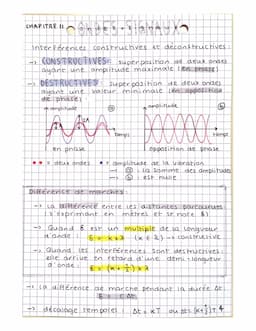 CHAPITRE 11 ONDES - SIGNAUX
Interférences constructives et déconstructives :
→ CONSTRUCTIVES : superposition de deux ondes
ayant une amplitude maximale (en phase)
→ DESTRUCTIVES : superposition de deux ondes
ayant une valeur minimale (en opposition
de phase)
amplitude ⓐ amplitude ⓑ
temps temps
en phase opposition de phase
= deux ondes = amplitude de la vibration
→ ⓐ : la somme des amplitudes
→ ⓑ : est nulle
Différence de marches :
→ La différence entre les distances parcourues
(s'exprimant en mètres et se note δ)
→ Quand δ est un multiple de la longueur
d'onde : δ = k × λ (k ∈ ℤ) → constructive
→ Quand les interférences sont destructives :
elle arrive en retard d'une demi-longueur
d'onde : δ = (k + 1/2) × λ
→ la différence de marche pendant la durée Δt :
δ = c Δt
→ décalage temporel : Δt = kT ou Δt =